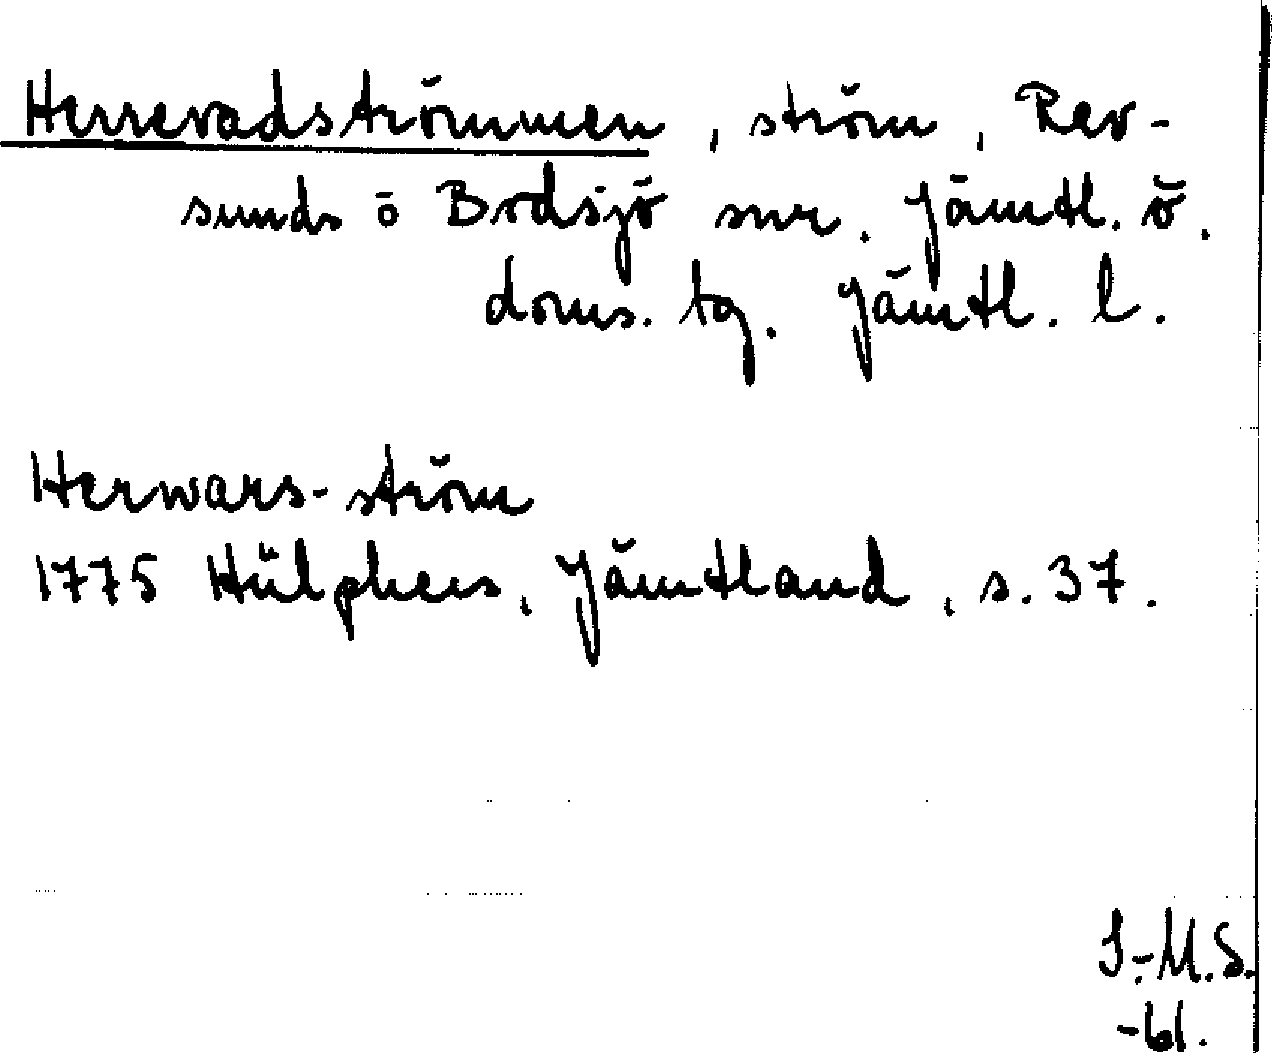 Herrevadströmmen, ström, Rev-
sunds o Brdsjö snr. Jämtl. ö.
doms. tg. Jämtl. l.
Herwars-ström
1775 Hülphers, Jämtland, s. 37.
I.-M.S.
-61.